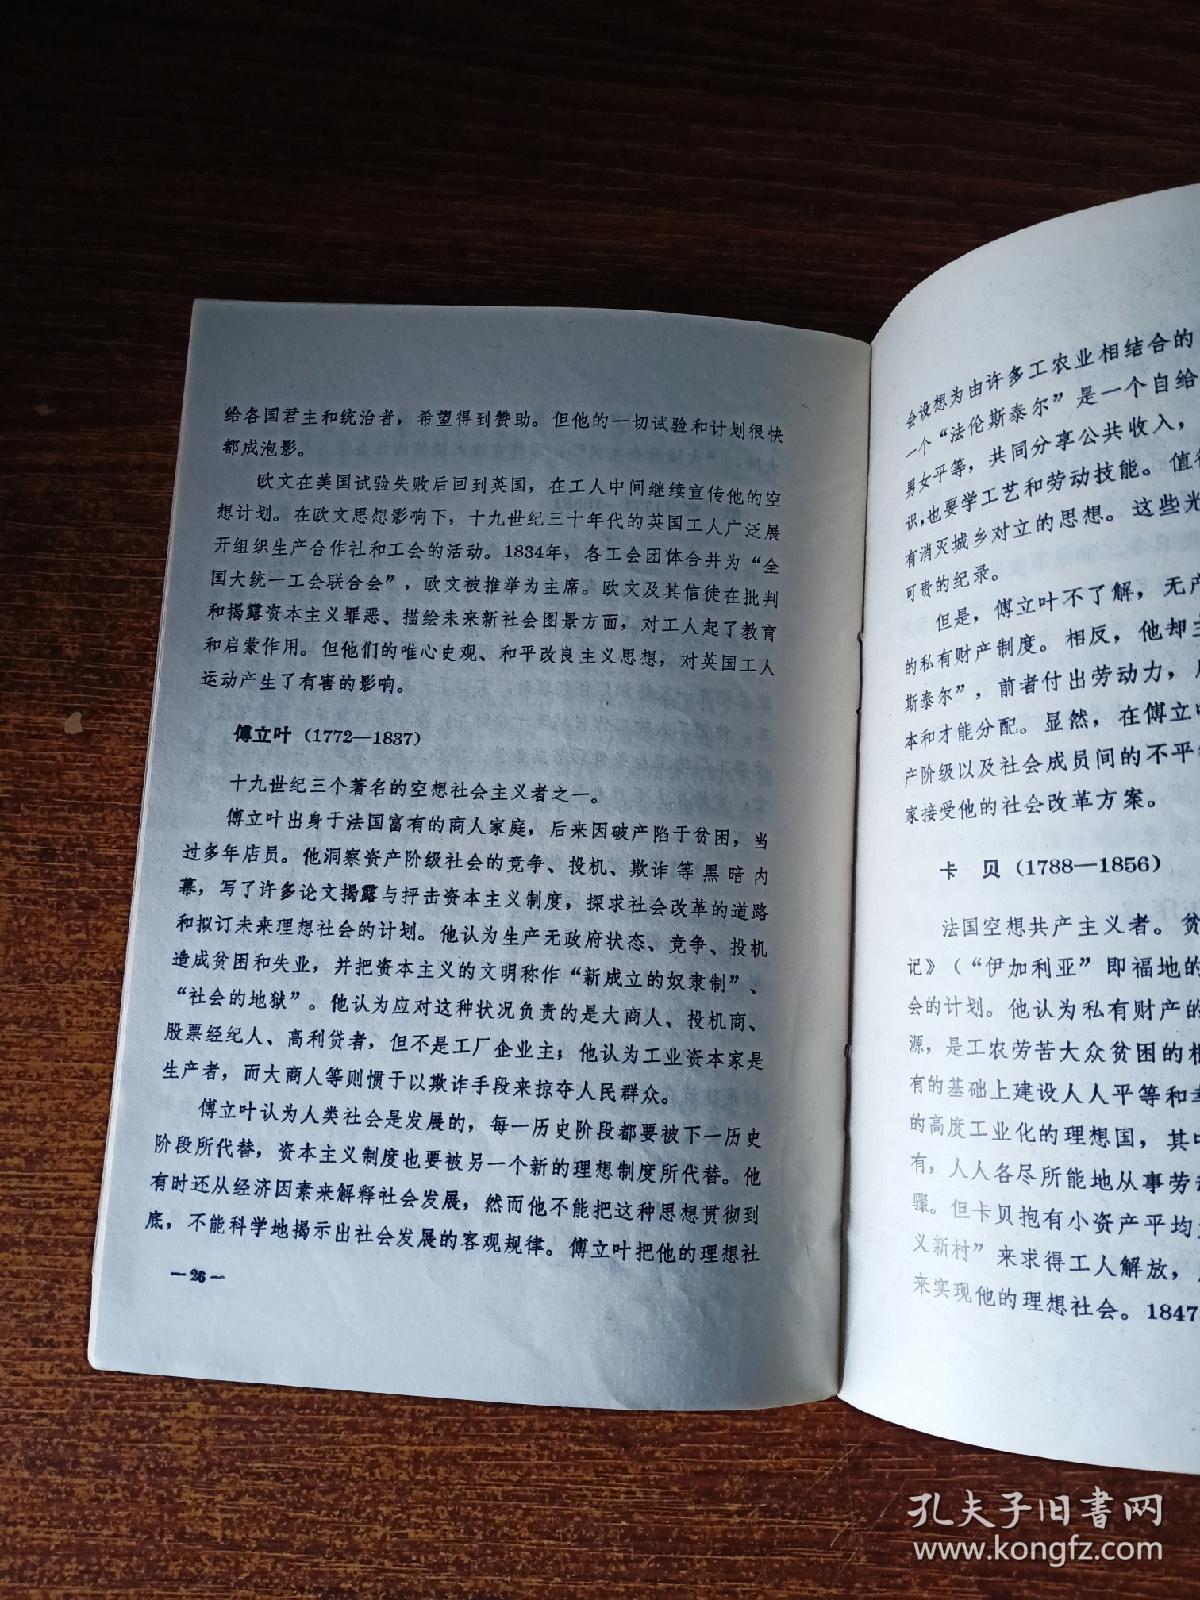 给各国君主和统治者，希望得到赞助。但他的一切试验和计划很快
都成泡影。
欧文在美国试验失败后回到英国，在工人中间继续宣传他的空
想计划。在欧文思想影响下，十九世纪三十年代的英国工人广泛展
开组织生产合作社和工会的活动。1834年，各工会团体合并为“全
国大统一工会联合会”，欧文被推举为主席。欧文及其信徒在批判
和揭露资本主义罪恶、描绘未来新社会图景方面，对工人起了教育
和启蒙作用。但他们的唯心史观、和平改良主义思想，对英国工人
运动产生了有害的影响。
傅立叶（1772—1837）
十九世纪三个著名的空想社会主义者之一。
傅立叶出身于法国富有的商人家庭，后来因破产陷于贫困，当
过多年店员。他洞察资产阶级社会的竞争、投机、欺诈等黑暗内
幕，写了许多论文揭露与抨击资本主义制度，探求社会改革的道路
和拟订未来理想社会的计划。他认为生产无政府状态、竞争、投机
造成贫困和失业，并把资本主义的文明称作“新成立的奴隶制”、
“社会的地狱”。他认为应对这种状况负责的是大商人、投机商、
股票经纪人、高利贷者，但不是工厂企业主；他认为工业资本家是
生产者，而大商人等则惯于以欺诈手段来掠夺人民群众。
傅立叶认为人类社会是发展的，每一历史阶段都要被下一历史
阶段所代替，资本主义制度也要被另一个新的理想制度所代替。他
有时还从经济因素来解释社会发展，然而他不能把这种思想贯彻到
底，不能科学地揭示出社会发展的客观规律。傅立叶把他的理想社
—26—
会设想为由许多工农业相结合的
一个“法伦斯泰尔”是一个自给
男女平等，共同分享公共收入，
识，也要学工艺和劳动技能。值
有消灭城乡对立的思想。这些光
可贵的纪录。
但是，傅立叶不了解，无产
的私有财产制度。相反，他却主
斯泰尔”，前者付出劳动力，
本和才能分配。显然，在傅立叶
产阶级以及社会成员间的不平
家接受他的社会改革方案。
卡　贝（1788—1856）
法国空想共产主义者。贫
记》（“伊加利亚”即福地的
会的计划。他认为私有财产的
源，是工农劳苦大众贫困的根
有的基础上建设人人平等和幸
的高度工业化的理想国，其中
有，人人各尽所能地从事劳动
骤。但卡贝抱有小资产平均
义新村”来求得工人解放，
来实现他的理想社会。1847
孔夫子旧书网
www.kongfz.com